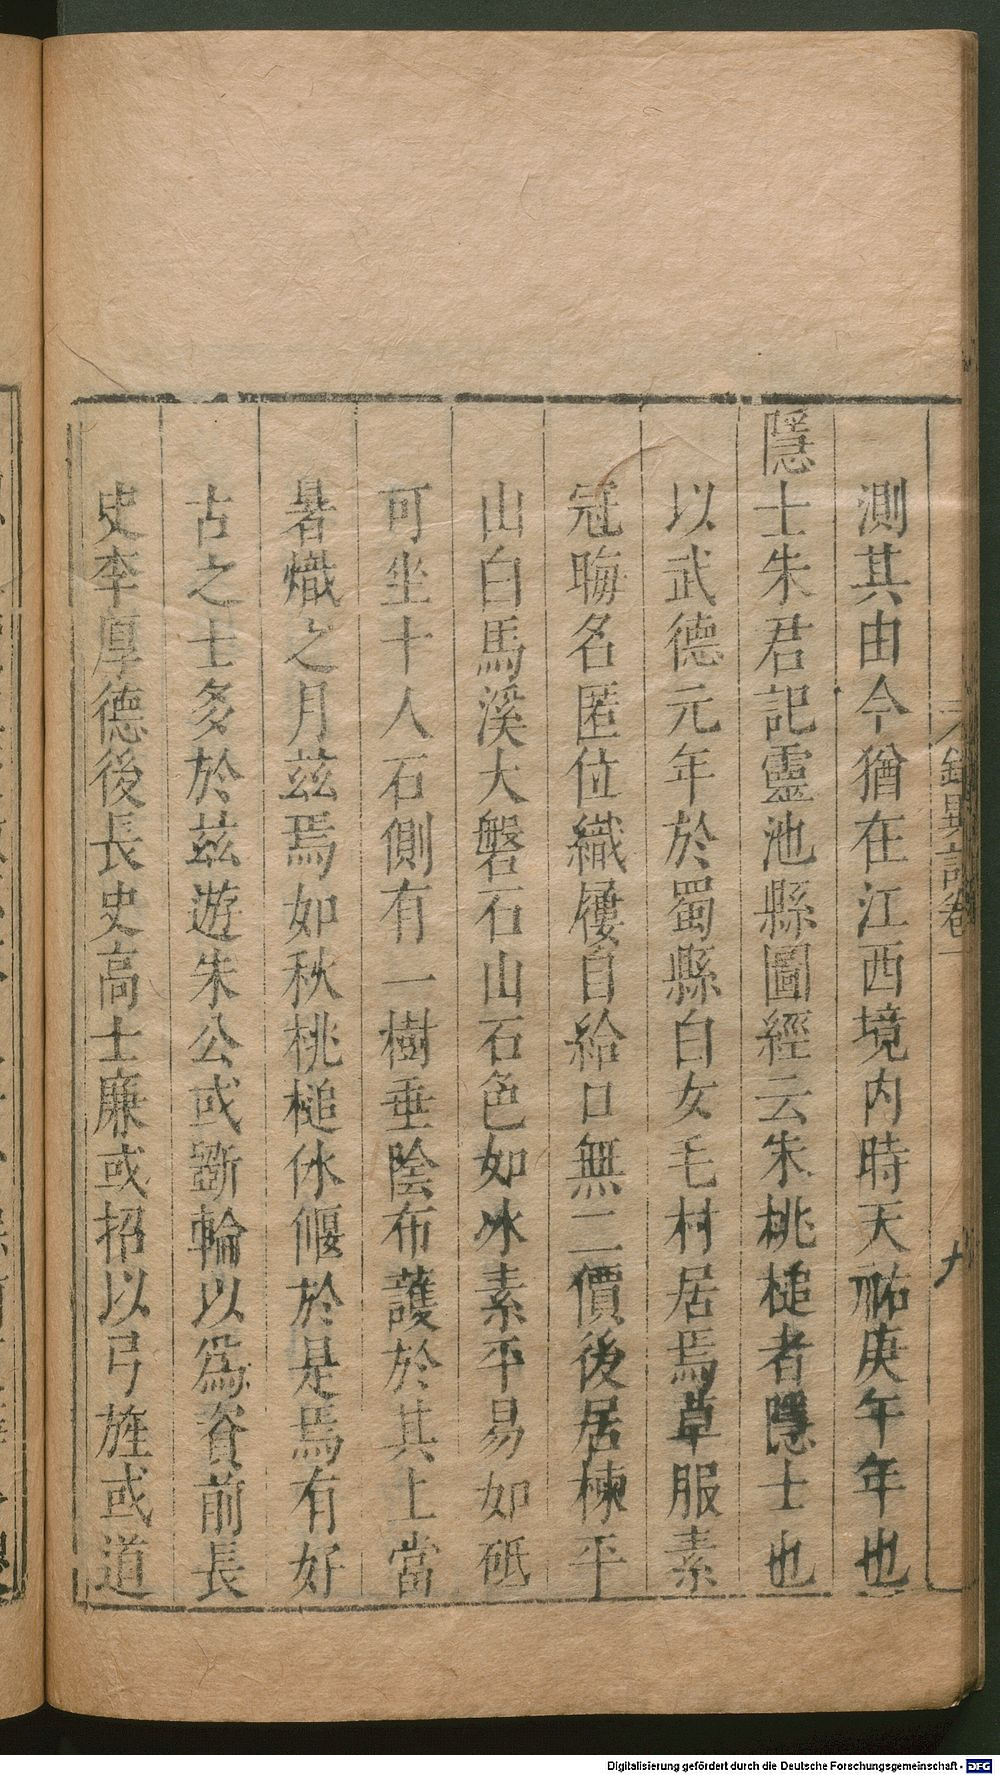 測其由今猶在江西境内時天祐庚午年也
隱士朱君記靈池縣圖經云朱桃槌者隱士也
以武德元年於蜀縣白女毛村居焉草服素
冠晦名匿位織屨自給口無二價後居楝平
山白馬溪大磐石山石色如冰素平易如砥
可坐十人石側有一樹垂陰布護於其上當
暑熾之月茲焉如秋桃槌休偃於是焉有好
古之士多於茲遊朱公或斵輪以爲資前長
史李厚德後長史高士廉或招以弓旌或道
錄異記卷一
Digitalisierung gefördert durch die Deutsche Forschungsgemeinschaft - DFG